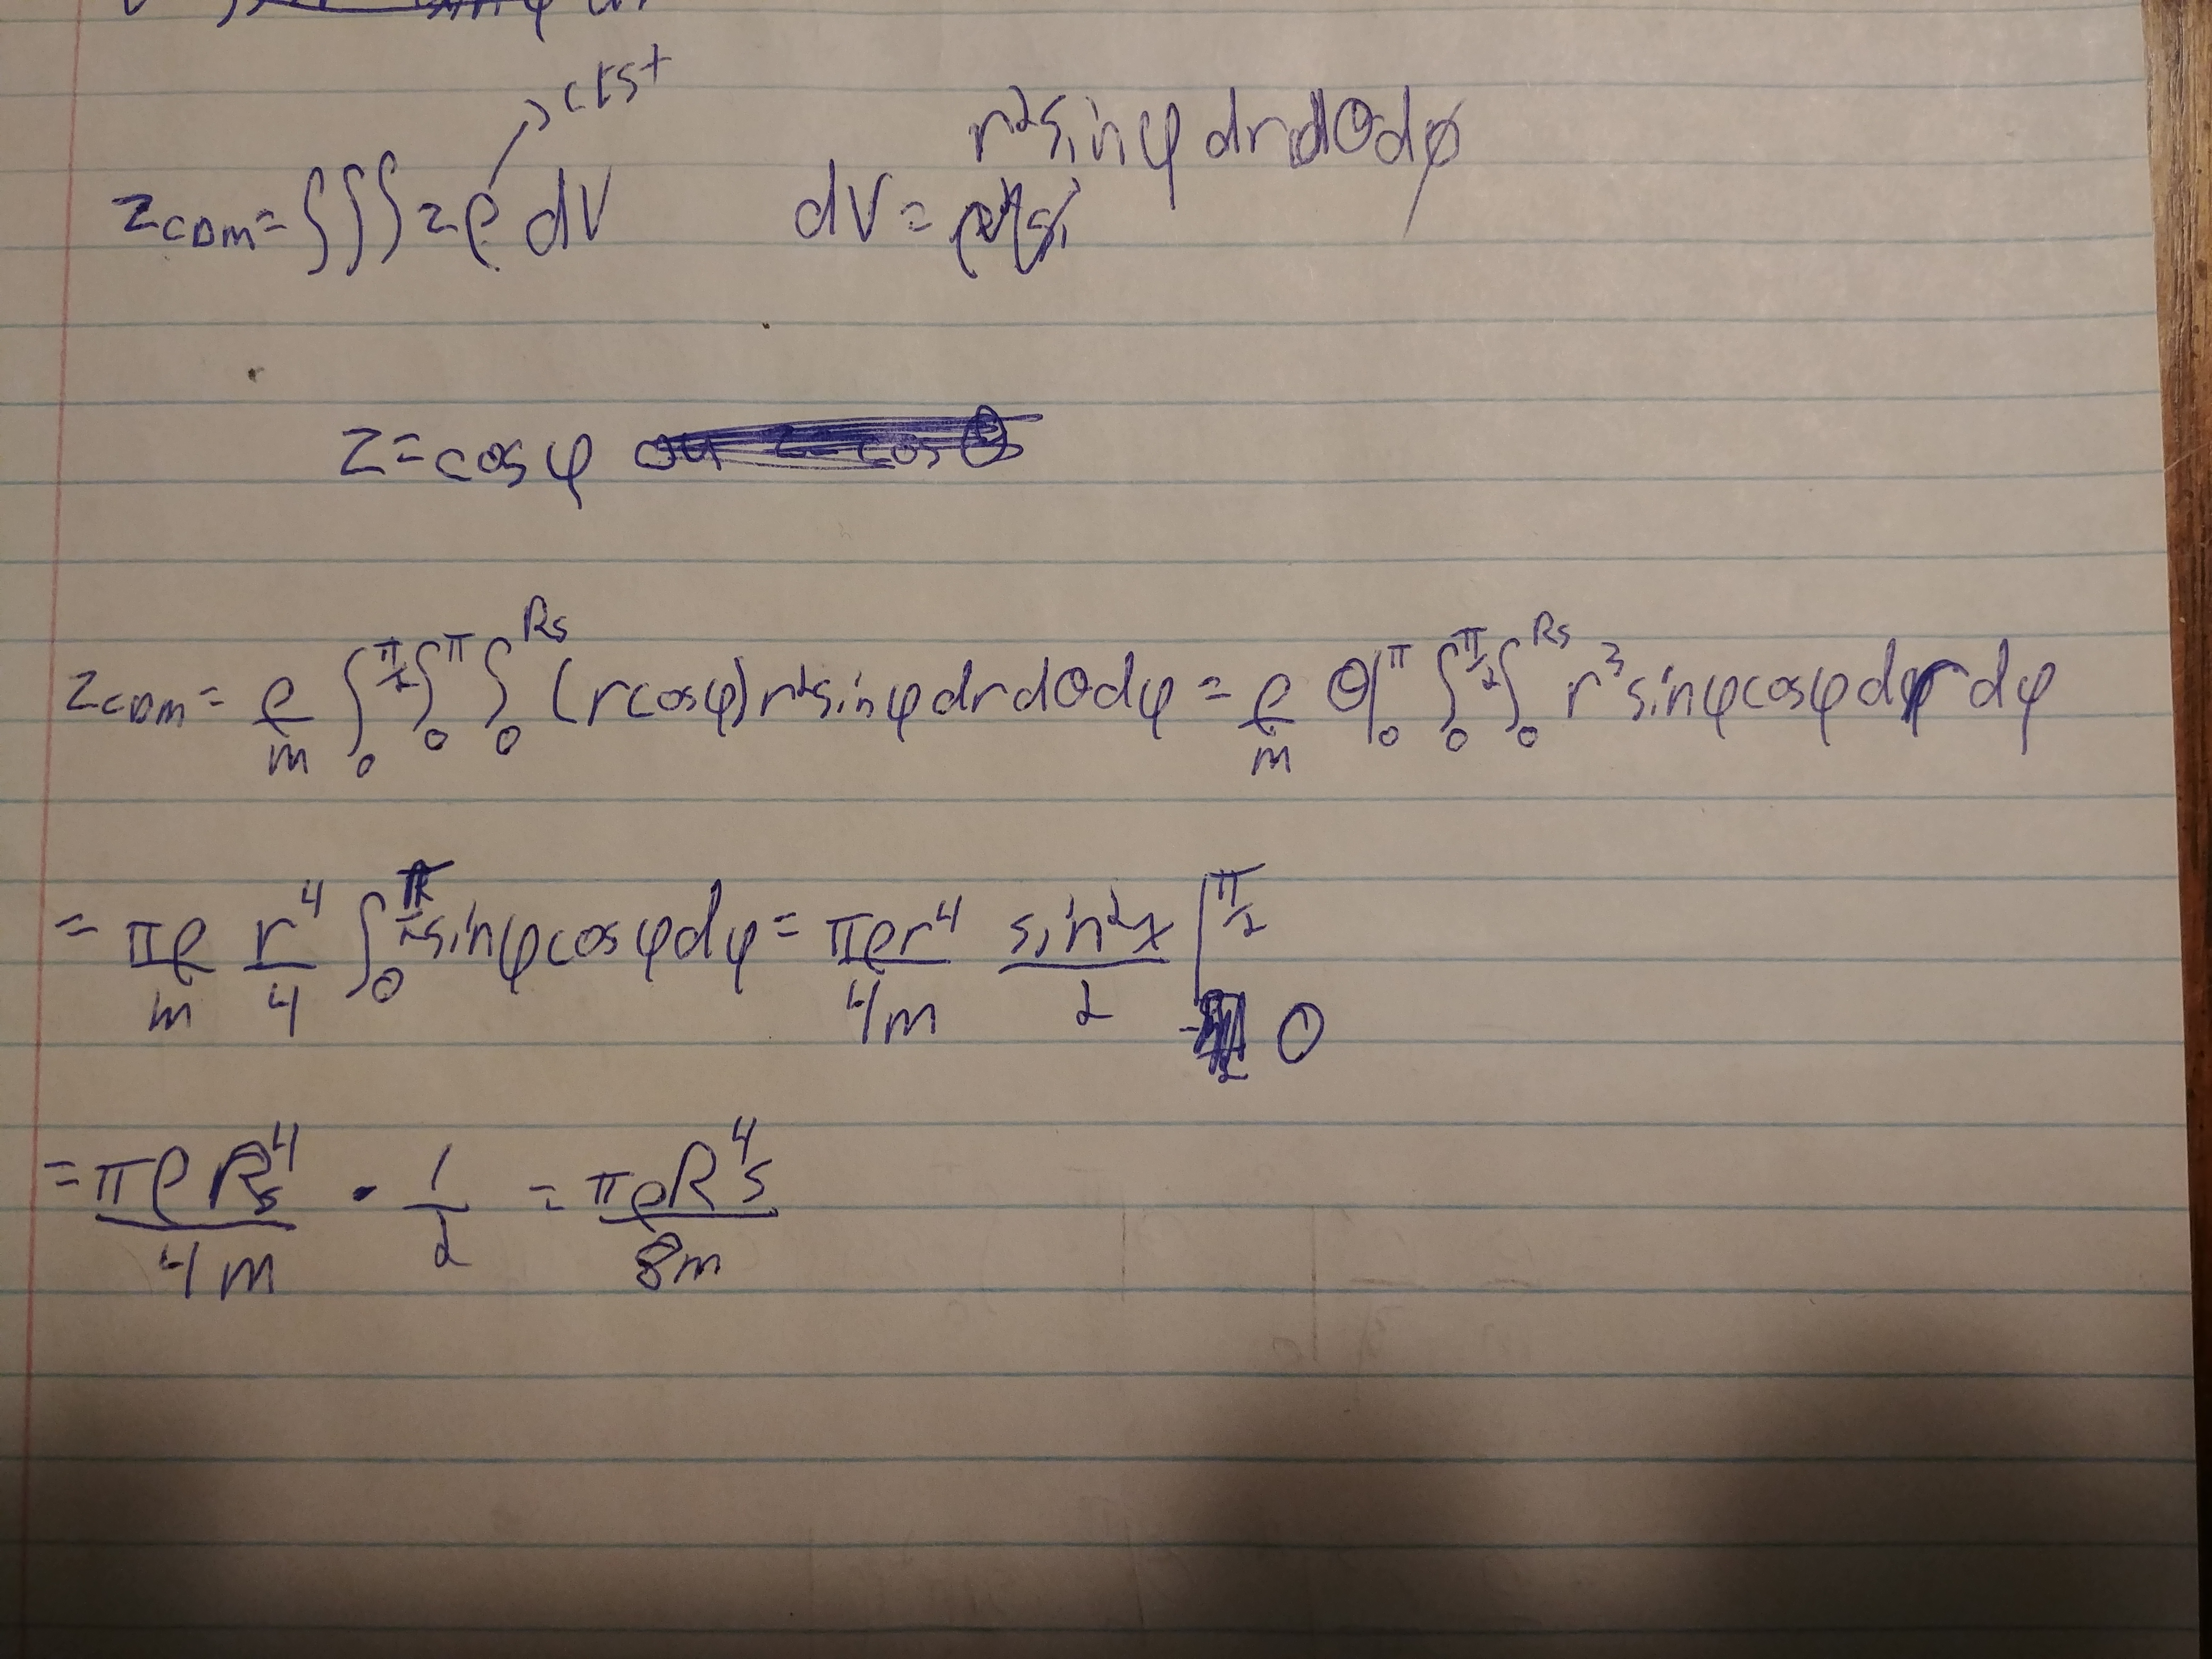 → cts+
r²sinφ dr dθ dφ
z_CDM = ∫∫∫ zρ dV dV =
z = cos φ
z_CDM = ρ/m ∫₀^(π/2) ∫₀^π ∫₀^(Rs) (r cosφ) r² sinφ dr dθ dφ = ρ/m θ|₀^π ∫₀^(π/2) ∫₀^(Rs) r³ sinφ cosφ dr dφ
= πρ/m r⁴/4 ∫₀^(π/2) sinφ cosφ dφ = πρr⁴/4m sin²x/2 |₀^(π/2)
= πρRs⁴/4m · 1/2 = πρRs⁴/8m